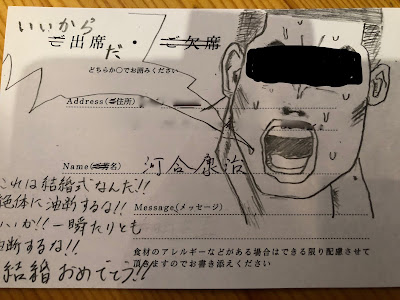 いいから
ご出席だ・ご欠席
どちらか〇でお囲みください
Address(ご住所)
Name(ご芳名)
河合康治
Message(メッセージ)
これは結婚式なんだ!!
絶体に油断するな!!
いいか!!一瞬たりとも
油断するな!!
結婚おめでとう!!
食材のアレルギーなどがある場合はできる限り配慮させて
頂きますのでお書き添えください